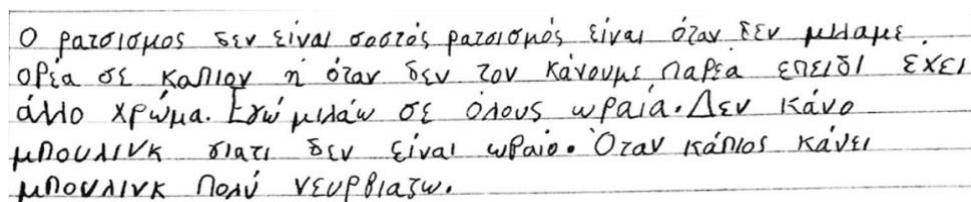 Ο ρατσισμος δεν είναι σοστός ρατσισμός είναι όταν δεν μιλαμε.
ορέα σε καπιον η όταν δεν τον κάνουμε παρέα επειδι έχει
άλλο χρώμα. Εγώ μιλάω σε όλους ωραία. Δεν κάνο
μπουλινκ γιατι δεν είναι ωραίο. Όταν κάπιος κάνει
μπουλινκ πολύ νευρβιαζω.